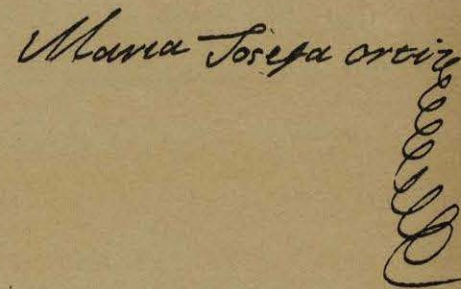 Maria Josefa ortiz